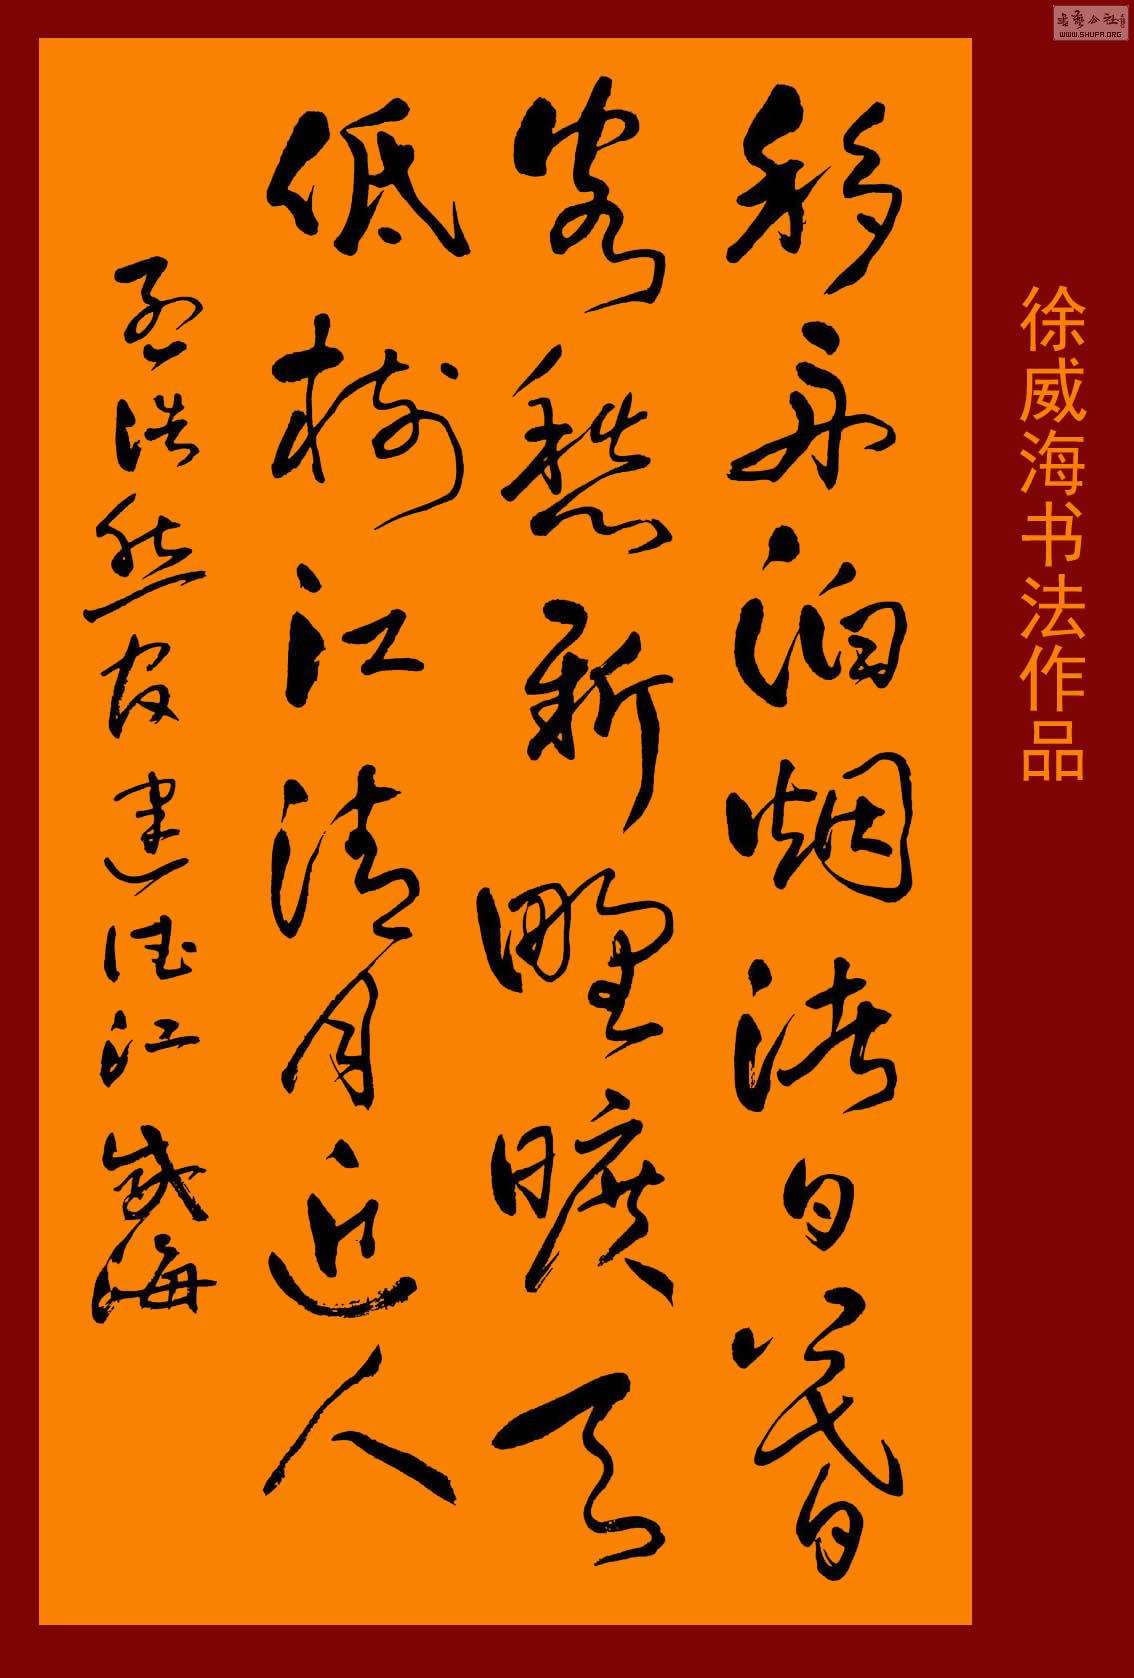 徐威海书法作品
移舟泊烟渚日暮
客愁新野曠天
低樹江清月近人
孟浩然宿建德江 威海
書藝公社
WWW.SHUFA.ORG